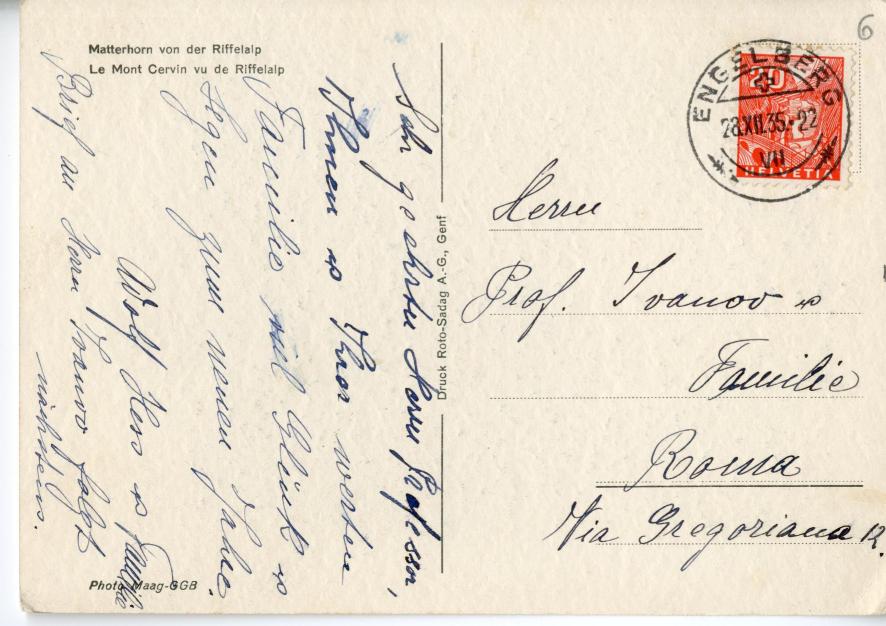 Matterhorn von der Riffelalp
Le Mont Cervin vu de Riffelalp
Sehr geehrter Herr Professor,
Ihnen u Ihrer werten
Familie viel Glück u
Segen zum neuen Jahre.
Wolf Hess u Familie
Brief an Herrn Ivanov folgt
nächstens.
Photo Maag-GGB
Druck Roto-Sadag A.-G., Genf
6
20
HELVETIA
ENGELBERG
28.XII.35.-22
VII
Herrn
Prof. Ivanov u
Familie
Roma
Via Gregoriana 12.